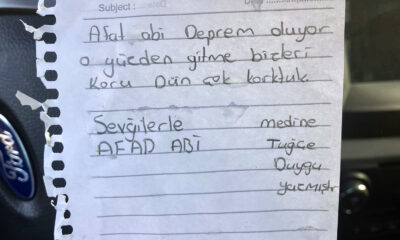 Subject :
Afat abi Deprem oluyor
o yüzden gitme bizleri
Koru Dün çok korktuk
Sevgilerle medine
AFAD ABİ Tuğçe
Duygu
yazmıştır
Ford